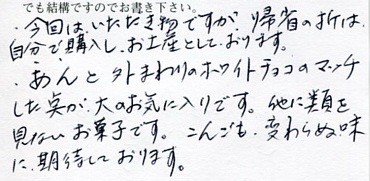 でも結構ですのでお書き下さい。
・今回は、いただき物ですが、帰省の折は、
自分で購入し、お土産としております。
・あんと外まわりのホワイトチョコのマッチ
した実が、大のお気に入りです。他に類を
見ないお菓子です。こんごも、変わらぬ味
に、期待しております。